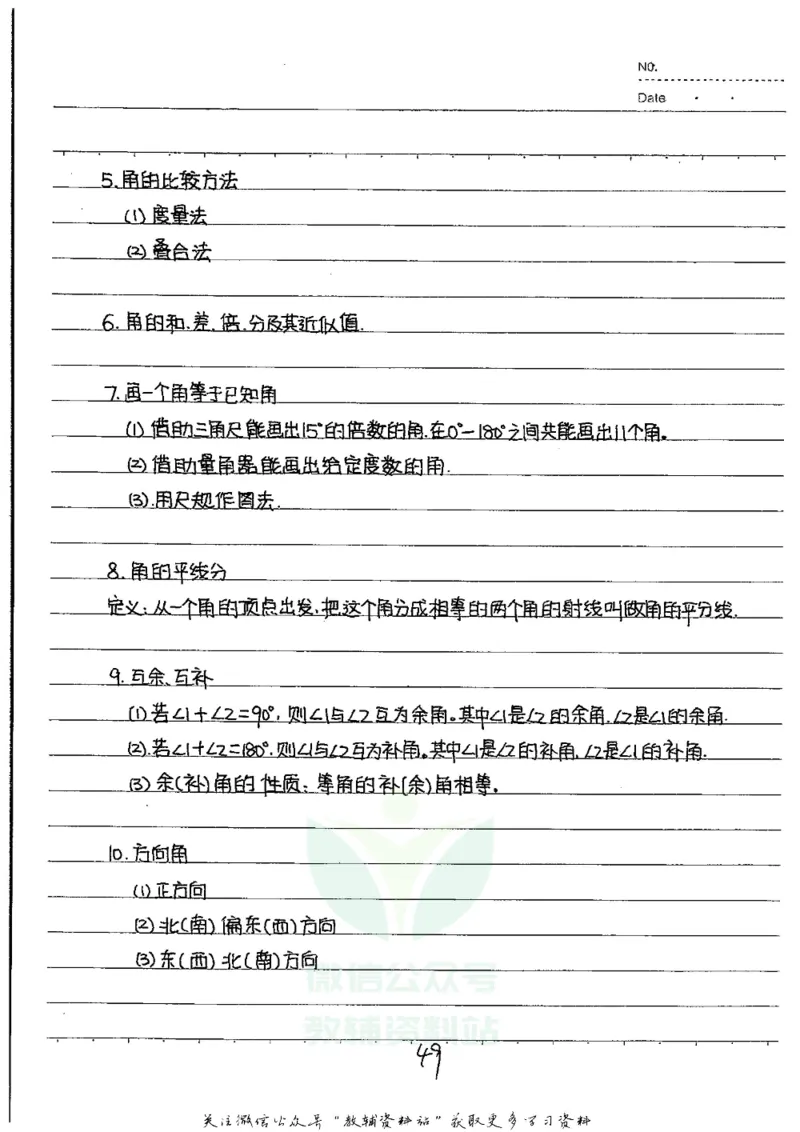 NO.
Date
5.角的比较方法
(1) 度量法
(2) 叠合法
6. 角的和.差.倍.分及其近似值.
7. 画一个角等于已知角
(1) 借助三角尺能画出15°的倍数的角.在0°—180°之间共能画出11个角。
(2) 借助量角器能画出给定度数的角.
(3).用尺规作图法.
8. 角的平线分
定义:从一个角的顶点出发.把这个角分成相等的两个角的射线叫做角的平分线.
9. 互余、互补
(1) 若∠1+∠2=90°, 则∠1与∠2互为余角。其中∠1是∠2的余角.∠2是∠1的余角.
(2).若∠1+∠2=180°.则∠1与∠2互为补角。其中∠1是∠2的补角.∠2是∠1的补角.
(3) 余(补)角的性质:等角的补(余)角相等。
10. 方向角
(1) 正方向
(2) 北(南)偏东(西)方向
(3) 东(西)北(南)方向
微信公众号
教辅资料站
49
关注微信公众号"教辅资料站"获取更多学习资料